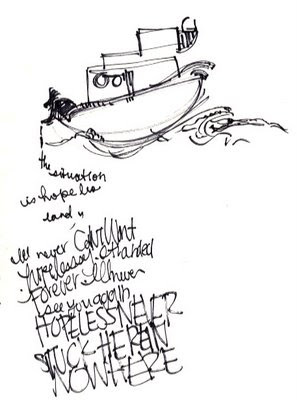 the situation
is hope les
land,,
Ill never
hopelessed. stranded
Forever Ill never
see you again
HOPELESS NEVER
STUCK HERE IN
NOWHERE